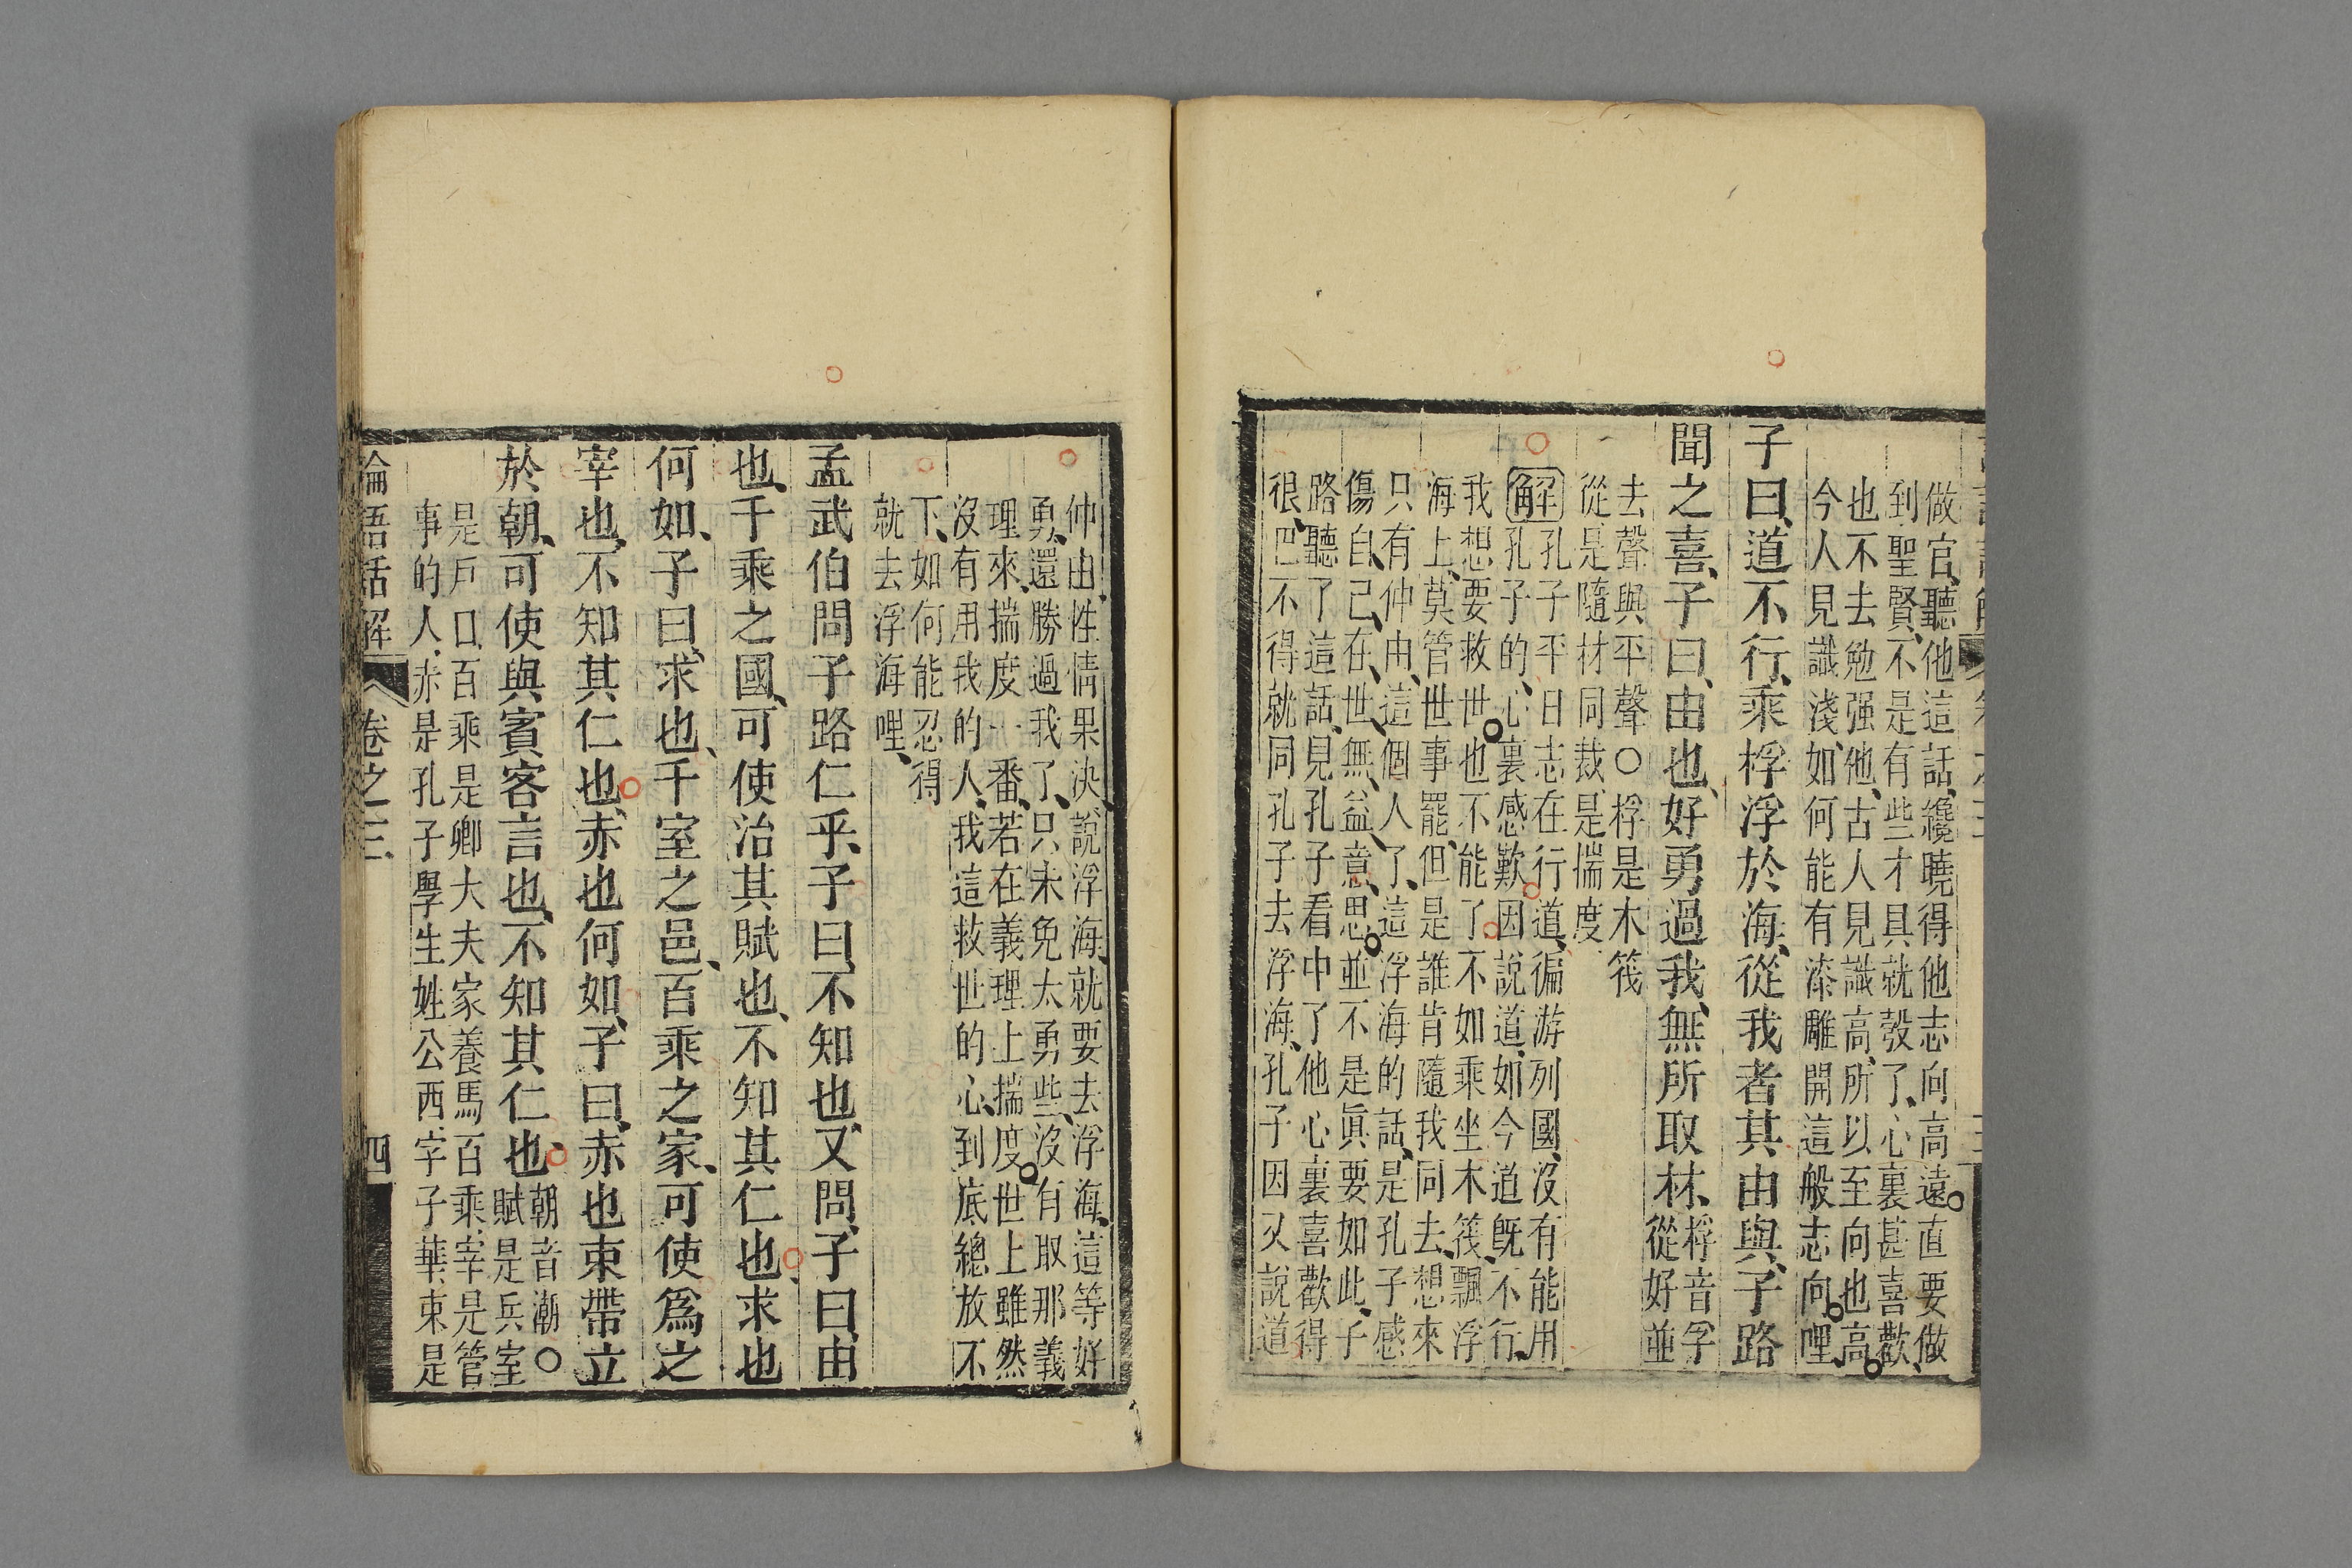 做官、聽他這話、纔曉得他志向高遠、直要做
到聖賢、不是有些才具就彀了、心裏甚喜歡、
也不去勉强他、古人見識高、所以至向也高、
今人見識淺、如何能有漆雕開這般志向哩、
子曰、道不行、乘桴浮於海、從我者其由與、子路
聞之喜、子曰、由也、好勇過我、無所取材、桴音孚
從好並
去聲與平聲○桴是木筏
從是隨材同裁是揣度
解孔子平日志在行道、徧游列國、沒有能用
孔子的、心裏感歎、因說道、如今道既不行、
我想要救世也不能了、不如乘坐木筏、飄浮
海上、莫管世事罷、但是誰肯隨我同去、想來
只有仲由、這個人了、這浮海的話、是孔子感
傷自己、在世無益、意思並不是眞要如此、子
路聽了這話、見孔子看中了他、心裏喜歡得
很、巴不得就同孔子去浮海、孔子因又說道
仲由性情果決、說浮海、就要去浮海、這等好
勇、還勝過我了、只未免太勇些、沒有取那義
理來、揣度一番、若在義理上揣度、世上雖然
沒有用我的人、我這救世的心、到底總放不
下、如何能忍得
就去浮海哩、
孟武伯問子路仁乎、子曰、不知也、又問、子曰、由
也、千乘之國、可使治其賦也、不知其仁也、求也
何如、子曰、求也、千室之邑、百乘之家、可使爲之
宰也、不知其仁也、赤也何如、子曰、赤也束帶立
於朝、可使與賓客言也、不知其仁也、朝音潮○
賦是兵室
是戶口百乘是卿大夫家養馬百乘、宰是管
事的人、赤是孔子學生姓公西、字子華、束是
論語話解 卷之三 四